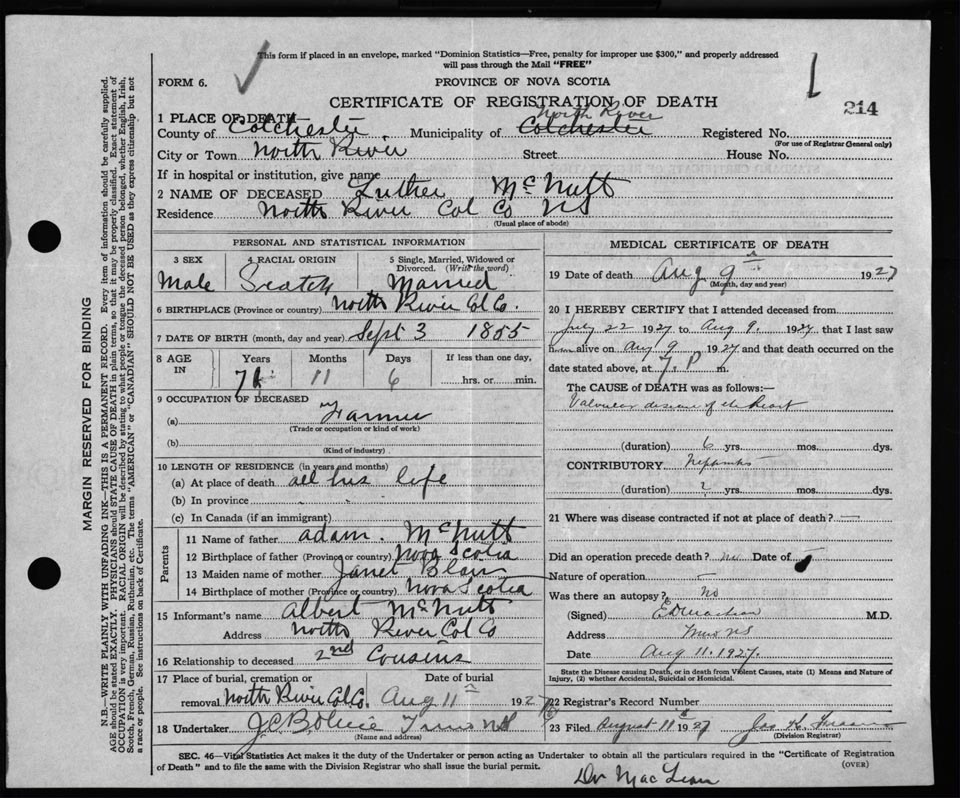 This form if placed in an envelope, marked "Dominion Statistics—Free, penalty for improper use $300," and properly addressed
will pass through the Mail "FREE"
FORM 6.
PROVINCE OF NOVA SCOTIA
CERTIFICATE OF REGISTRATION OF DEATH
214
1 PLACE OF DEATH
North River
County of Colchester Municipality of Colchester Registered No.
(For use of Registrar General only)
City or Town North River Street House No.
If in hospital or institution, give name
2 NAME OF DECEASED Luther McNutt
Residence North River Col Co NS
(Usual place of abode)
PERSONAL AND STATISTICAL INFORMATION
3 SEX 4 RACIAL ORIGIN 5 Single, Married, Widowed or Divorced. (Write the word)
Male Scotch Married
6 BIRTHPLACE (Province or country) North River Col Co.
7 DATE OF BIRTH (month, day and year) Sept 3 1855
8 AGE IN Years Months Days If less than one day,
71 11 6 hrs. or min.
9 OCCUPATION OF DECEASED
(a) Farmer
(Trade or occupation or kind of work)
(b)
(Kind of industry)
10 LENGTH OF RESIDENCE (in years and months)
(a) At place of death all his life
(b) In province
(c) In Canada (if an immigrant)
Parents
11 Name of father adam. McNutt
12 Birthplace of father (Province or country) Nova Scotia
13 Maiden name of mother Janet Blair
14 Birthplace of mother (Province or country) Nova Scotia
15 Informant's name Albert McNutt
Address North River Col Co
16 Relationship to deceased 2nd Cousins
17 Place of burial, cremation or Date of burial
removal North River Col Co. Aug 11 1927
18 Undertaker Truro NS
(Name and address)
MEDICAL CERTIFICATE OF DEATH
19 Date of death Aug 9 1927
(Month, day and year)
20 I HEREBY CERTIFY that I attended deceased from
July 22 1927 to Aug 9. 1927 that I last saw
alive on Aug 9 1927 and that death occurred on the
date stated above, at 7. P m.
The CAUSE of DEATH was as follows:—
Valvular disease of the heart
(duration) 6 yrs. mos. dys.
CONTRIBUTORY
(duration) ? yrs. mos. dys.
21 Where was disease contracted if not at place of death? —
Did an operation precede death? no Date of —
Nature of operation —
Was there an autopsy? No
(Signed) M.D.
Address Truro NS
Date Aug 11. 1927.
State the Disease causing Death, or in death from Violent Causes, state (1) Means and Nature of
Injury, (2) whether Accidental, Suicidal or Homicidal.
22 Registrar's Record Number
23 Filed August 11th 1927
(Division Registrar)
SEC. 46—Vital Statistics Act makes it the duty of the Undertaker or person acting as Undertaker to obtain all the particulars required in the "Certificate of Registration
of Death" and to file the same with the Division Registrar who shall issue the burial permit.
(OVER)
Dr MacLean
MARGIN RESERVED FOR BINDING
N.B.—WRITE PLAINLY WITH UNFADING INK—THIS IS A PERMANENT RECORD. Every item of information should be carefully supplied.
AGE should be stated EXACTLY. PHYSICIANS should STATE CAUSE OF DEATH in plain terms, so that it may be properly classified. Exact statement of
OCCUPATION is very important. RACIAL ORIGIN will be described by stating to what people or tongue the deceased person belonged, whether English, Irish,
Scotch, French, German, Russian, Ruthenian, etc. The terms "AMERICAN" or "CANADIAN" SHOULD NOT BE USED as they express citizenship but not
a race or people. See instructions on back of Certificate.